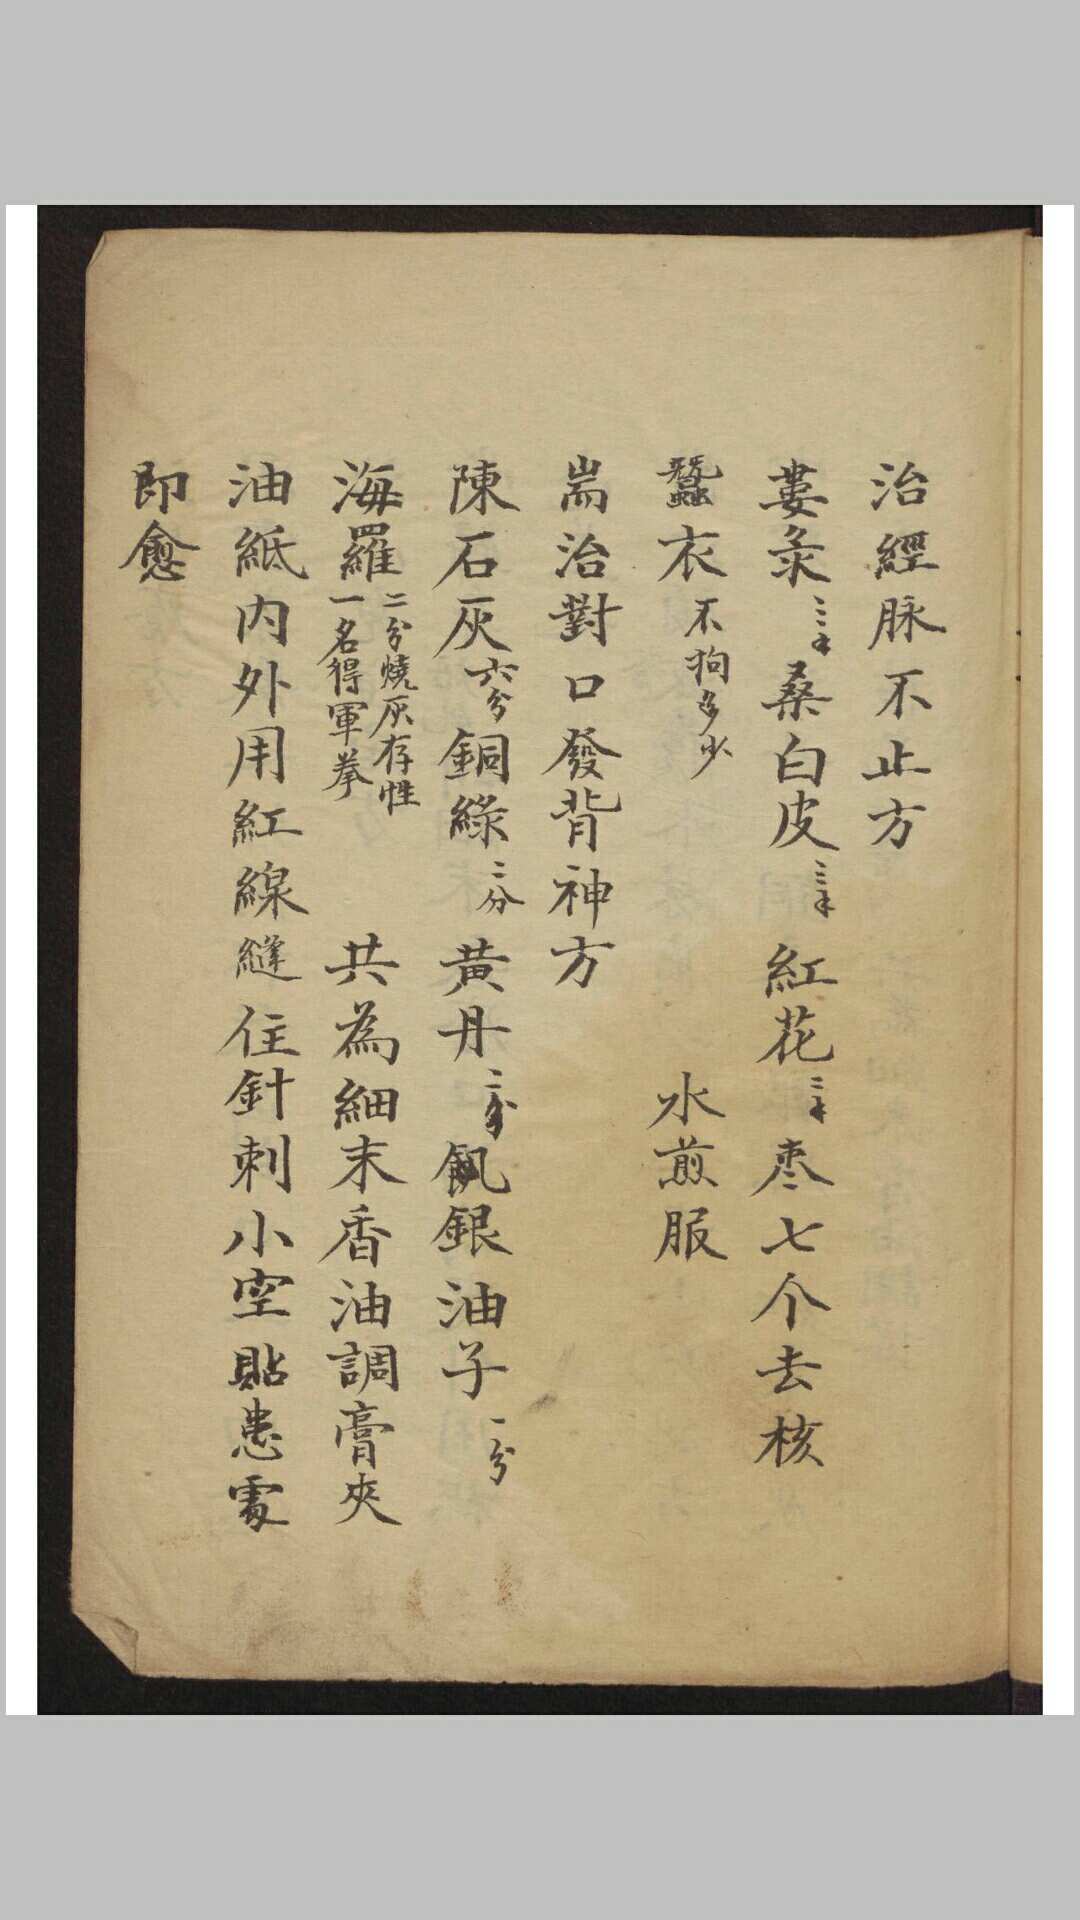 治經脉不止方
婁彔三才桑白皮三才紅花三才枣七个去核
蠶衣不狗多少 水煎服
耑治對口發背神方
陳石灰六分銅綠二分黃丹二分飢銀油子一分
海羅二分燒灰存性一名得軍拳 共為細末香油調膏夾
油紙內外用紅線縫住針刺小空貼患處
即愈